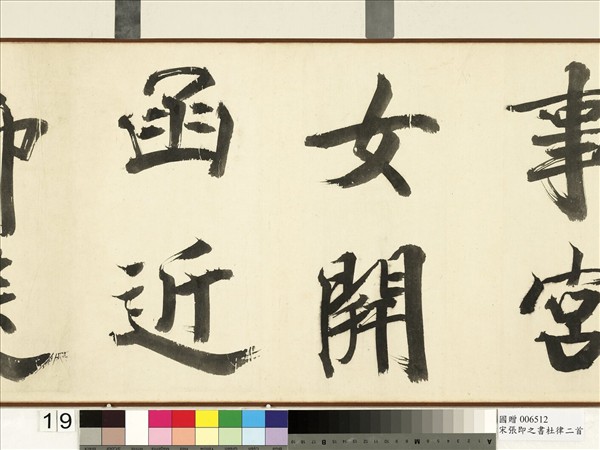 事宮
女開
函近
19
國贈 006512
宋張即之書杜律二首